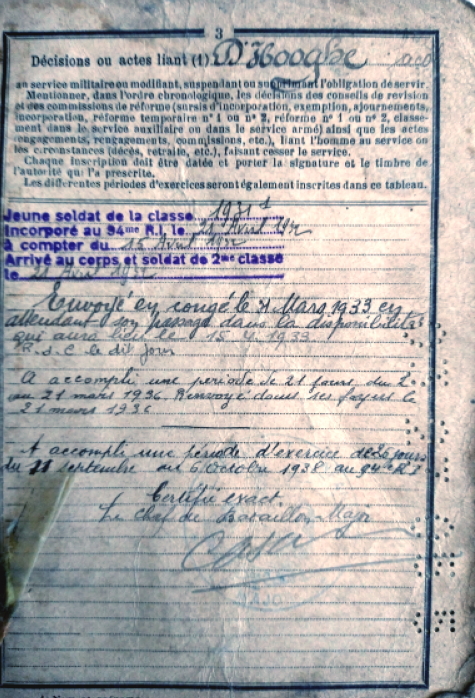 3
Décisions ou actes liant (1) D'Hooghe
au service militaire ou modifiant, suspendant ou supprimant l'obligation de servir.
Mentionner, dans l'ordre chronologique, les décisions des conseils de revision
et des commissions de réforme (sursis d'incorporation, exemption, ajournements,
incorporation, réforme temporaire n° 1 ou n° 2, réforme n° 1 ou n° 2, classe-
ment dans le service auxiliaire ou dans le service armé) ainsi que les actes
(engagements, rengagements, commissions, etc.), liant l'homme au service ou
les circonstances (décès, retraite, etc.), faisant cesser le service.
Chaque inscription doit être datée et porter la signature et le timbre de
l'autorité qui l'a prescrite.
Les différentes périodes d'exercices seront également inscrites dans ce tableau.
Jeune soldat de la classe 1931
Incorporé au 94me R.I. le 21 Avril 1932
à compter du 15 Avril 1932
Arrivé au corps et soldat de 2me classe
le 21 Avril 1932
Envoyé en congé le Mars 1933 en
attendant son passage dans la disponibilité
qui aura lieu le 15.4.1933
le dit jour
A accompli une période de 21 jours, du
au 21 mars 1936. Renvoyé dans ses foyers le
21 mars 1936
A accompli une période d'exercice de jours
du septembre au 6 Octobre 1938 au 94e R.I
Certifié exact
Le Chef de Bataillon Major